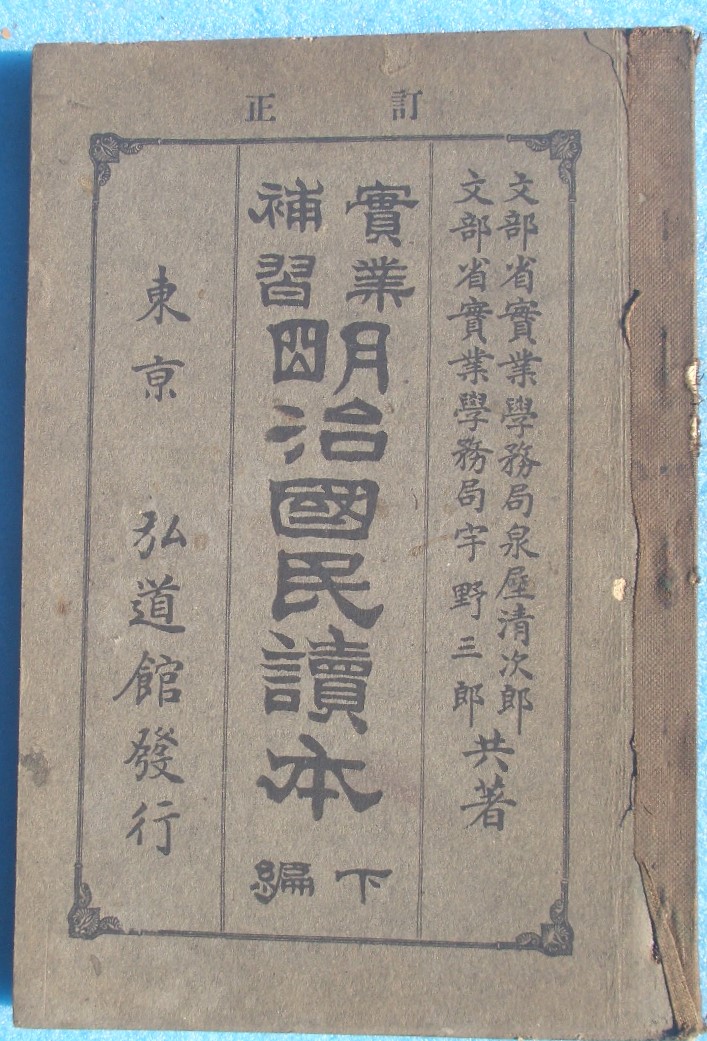 訂正
文部省實業學務局泉屋清次郎
文部省實業學務局宇野三郎
共著
實業
補習
明治國民讀本
下編
東京 弘道館發行